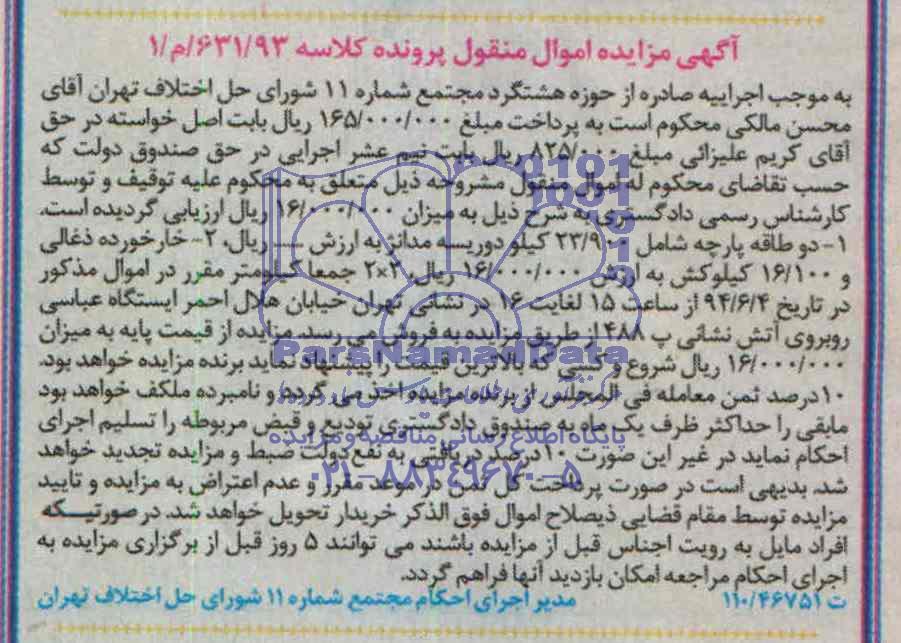 آگهی مزایده اموال منقول پرونده کلاسه ۶۳۱/۹۳/م/۱
به موجب اجراییه صادره از حوزه هشتگرد مجتمع شماره ۱۱ شورای حل اختلاف تهران آقای
محسن مالکی محکوم است به پرداخت مبلغ ۱۶۵/۰۰۰/۰۰۰ ریال بابت اصل خواسته در حق
آقای کریم علیزائی مبلغ ۸۲۵/۰۰۰ ریال بابت نیم عشر اجرایی در حق صندوق دولت که
حسب تقاضای محکوم له اموال منقول مشروحه ذیل متعلق به محکوم علیه توقیف و توسط
کارشناس رسمی دادگستری به شرح ذیل به میزان ۱۶/۰۰۰/۰۰۰ ریال ارزیابی گردیده است.
۱- دو طاقه پارچه شامل ۲۳/۹۰۰ کیلو دوریسه مدانژ به ارزش ـــ ریال، ۲- خارخورده ذغالی
و ۱۶/۱۰۰ کیلوکش به ارزش ۱۶/۰۰۰/۰۰۰ ریال، ۲×۲ جمعا کیلومتر مقرر در اموال مذکور
در تاریخ ۹۴/۶/۴ از ساعت ۱۵ لغایت ۱۶ در نشانی تهران خیابان هلال احمر ایستگاه عباسی
روبروی آتش نشانی پ ۴۸۸ از طریق مزایده به فروش می رسد. مزایده از قیمت پایه به میزان
۱۶/۰۰۰/۰۰۰ ریال شروع و کسی که بالاترین قیمت را پیشنهاد نماید برنده مزایده خواهد بود.
۱۰درصد ثمن معامله فی المجلس از برنده مزایده اخذ می گردد و نامبرده ملکف خواهد بود
مابقی را حداکثر ظرف یک ماه به صندوق دادگستری تودیع و قبض مربوطه را تسلیم اجرای
احکام نماید در غیر این صورت ۱۰درصد دریافتی به نفع دولت ضبط و مزایده تجدید خواهد
شد. بدیهی است در صورت پرداخت کل ثمن در موعد مقرر و عدم اعتراض به مزایده و تایید
مزایده توسط مقام قضایی ذیصلاح اموال فوق الذکر خریدار تحویل خواهد شد. در صورتیکه
افراد مایل به رویت اجناس قبل از مزایده باشند می توانند ۵ روز قبل از برگزاری مزایده به
اجرای احکام مراجعه امکان بازدید آنها فراهم گردد.
ت ۱۱۰/۴۶۷۵۱ مدیر اجرای احکام مجتمع شماره ۱۱ شورای حل اختلاف تهران
ParsNamadData
پایگاه اطلاع رسانی مناقصه و مزایده
۰۲۱-۸۸۳۴۹۶۷۰-۵